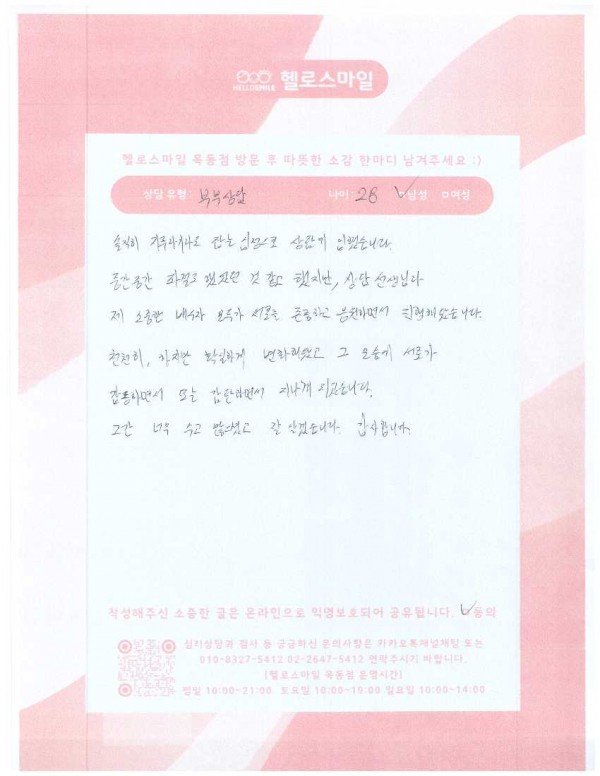 HELLOSMILE 헬로스마일
헬로스마일 목동점 방문 후 따뜻한 소감 한마디 남겨주세요 :)
상담 유형: 부부상담 나이: 28 ✓남성 □여성
솔직히 지푸라기라도 잡는 심정으로 상담에 임했습니다.
중간중간 했었던 것 같고 했지만, 상담 선생님과
제 소중한 배우자 모두가 서로를 존중하고 응원하면서 진행해왔습니다.
천천히, 하지만 확실하게 변화하였고 그 모습에 서로가
감동하면서 또는 감탄하면서 지나게 되었습니다.
그간 너무 수고 많으셨고 잘 살겠습니다. 감사합니다.
작성해주신 소중한 글은 온라인으로 익명보호되어 공유됩니다. ✓동의
심리상담과 검사 등 궁금하신 문의사항은 카카오톡채널채팅 또는
010-8327-5412 02-2647-5412 연락주시기 바랍니다.
[헬로스마일 목동점 운영시간]
평일 10:00-21:00 토요일 10:00-19:00 일요일 10:00-14:00